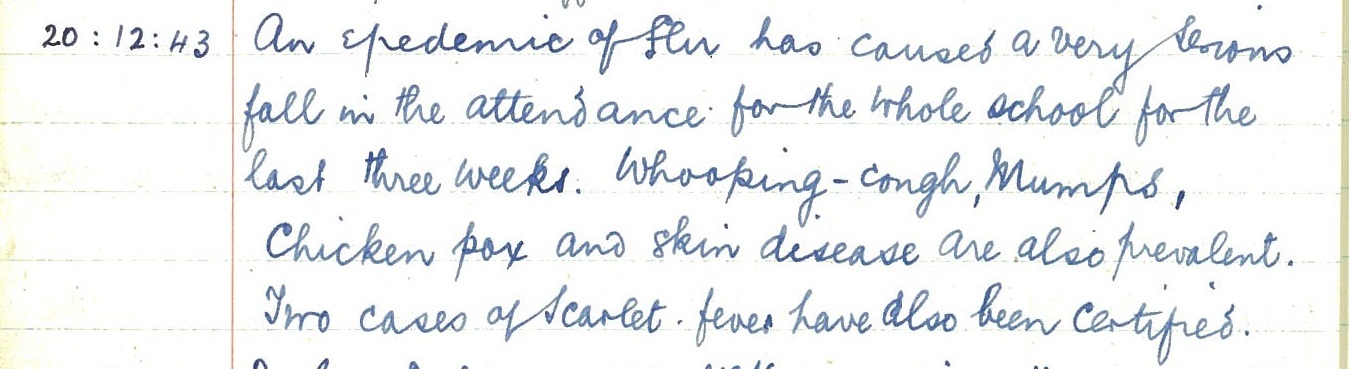 20:12:43 An epedemic of Flu has caused a very serious
fall in the attendance for the whole school for the
last three weeks. Whooping-cough, Mumps,
Chicken pox and skin disease are also prevalent.
Two cases of Scarlet. fever have also been certified.